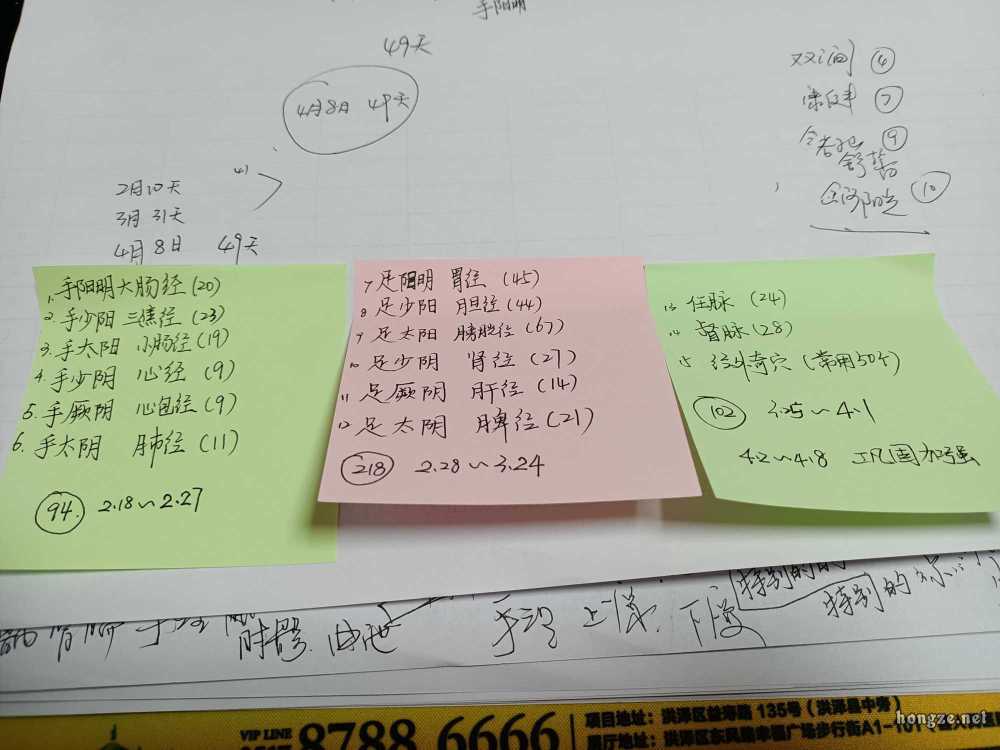 手阳明
49天
4月8日 49天
2月10天
3月31天
4月8日 49天
④
⑦
⑨
⑩
1. 手阳明大肠经(20)
2. 手少阳 三焦经(23)
3. 手太阳 小肠经(19)
4. 手少阴 心经(9)
5. 手厥阴 心包经(9)
6. 手太阴 肺经(11)
94. 2.18~2.27
7 足阳明 胃经(45)
8 足少阳 胆经(44)
9 足太阳 膀胱经(67)
10 足少阴 肾经(27)
11 足厥阴 肝经(14)
12 足太阴 脾经(21)
218 2.28~3.24
13 任脉(24)
14 督脉(28)
15 经外奇穴(常用50个)
102 3.25~4.1
4.2~4.18 巩固加强
特别的
肘髎. 曲池
手三里 上廉. 下廉
特别的
VIP LINE
8788 6666
项目地址:洪泽区益海路 135号(洪泽县中旁)
展厅地址:洪泽区东风路幸福广场步行街A1-101
hongze.net